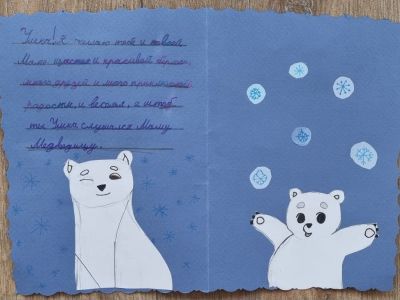 Умка! Я желаю тебе и твоей
Маме счастья и красивой
много друзей и много приключений,
радости и веселья, а чтоб
ты Умка слушался Маму
Медведицу.